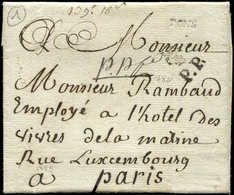 A Monsieur
P.P.
P.P.
Monsieur Rambaud
Employé a l'hotel des
vivres de la marine
Rue Luxembourg
a paris